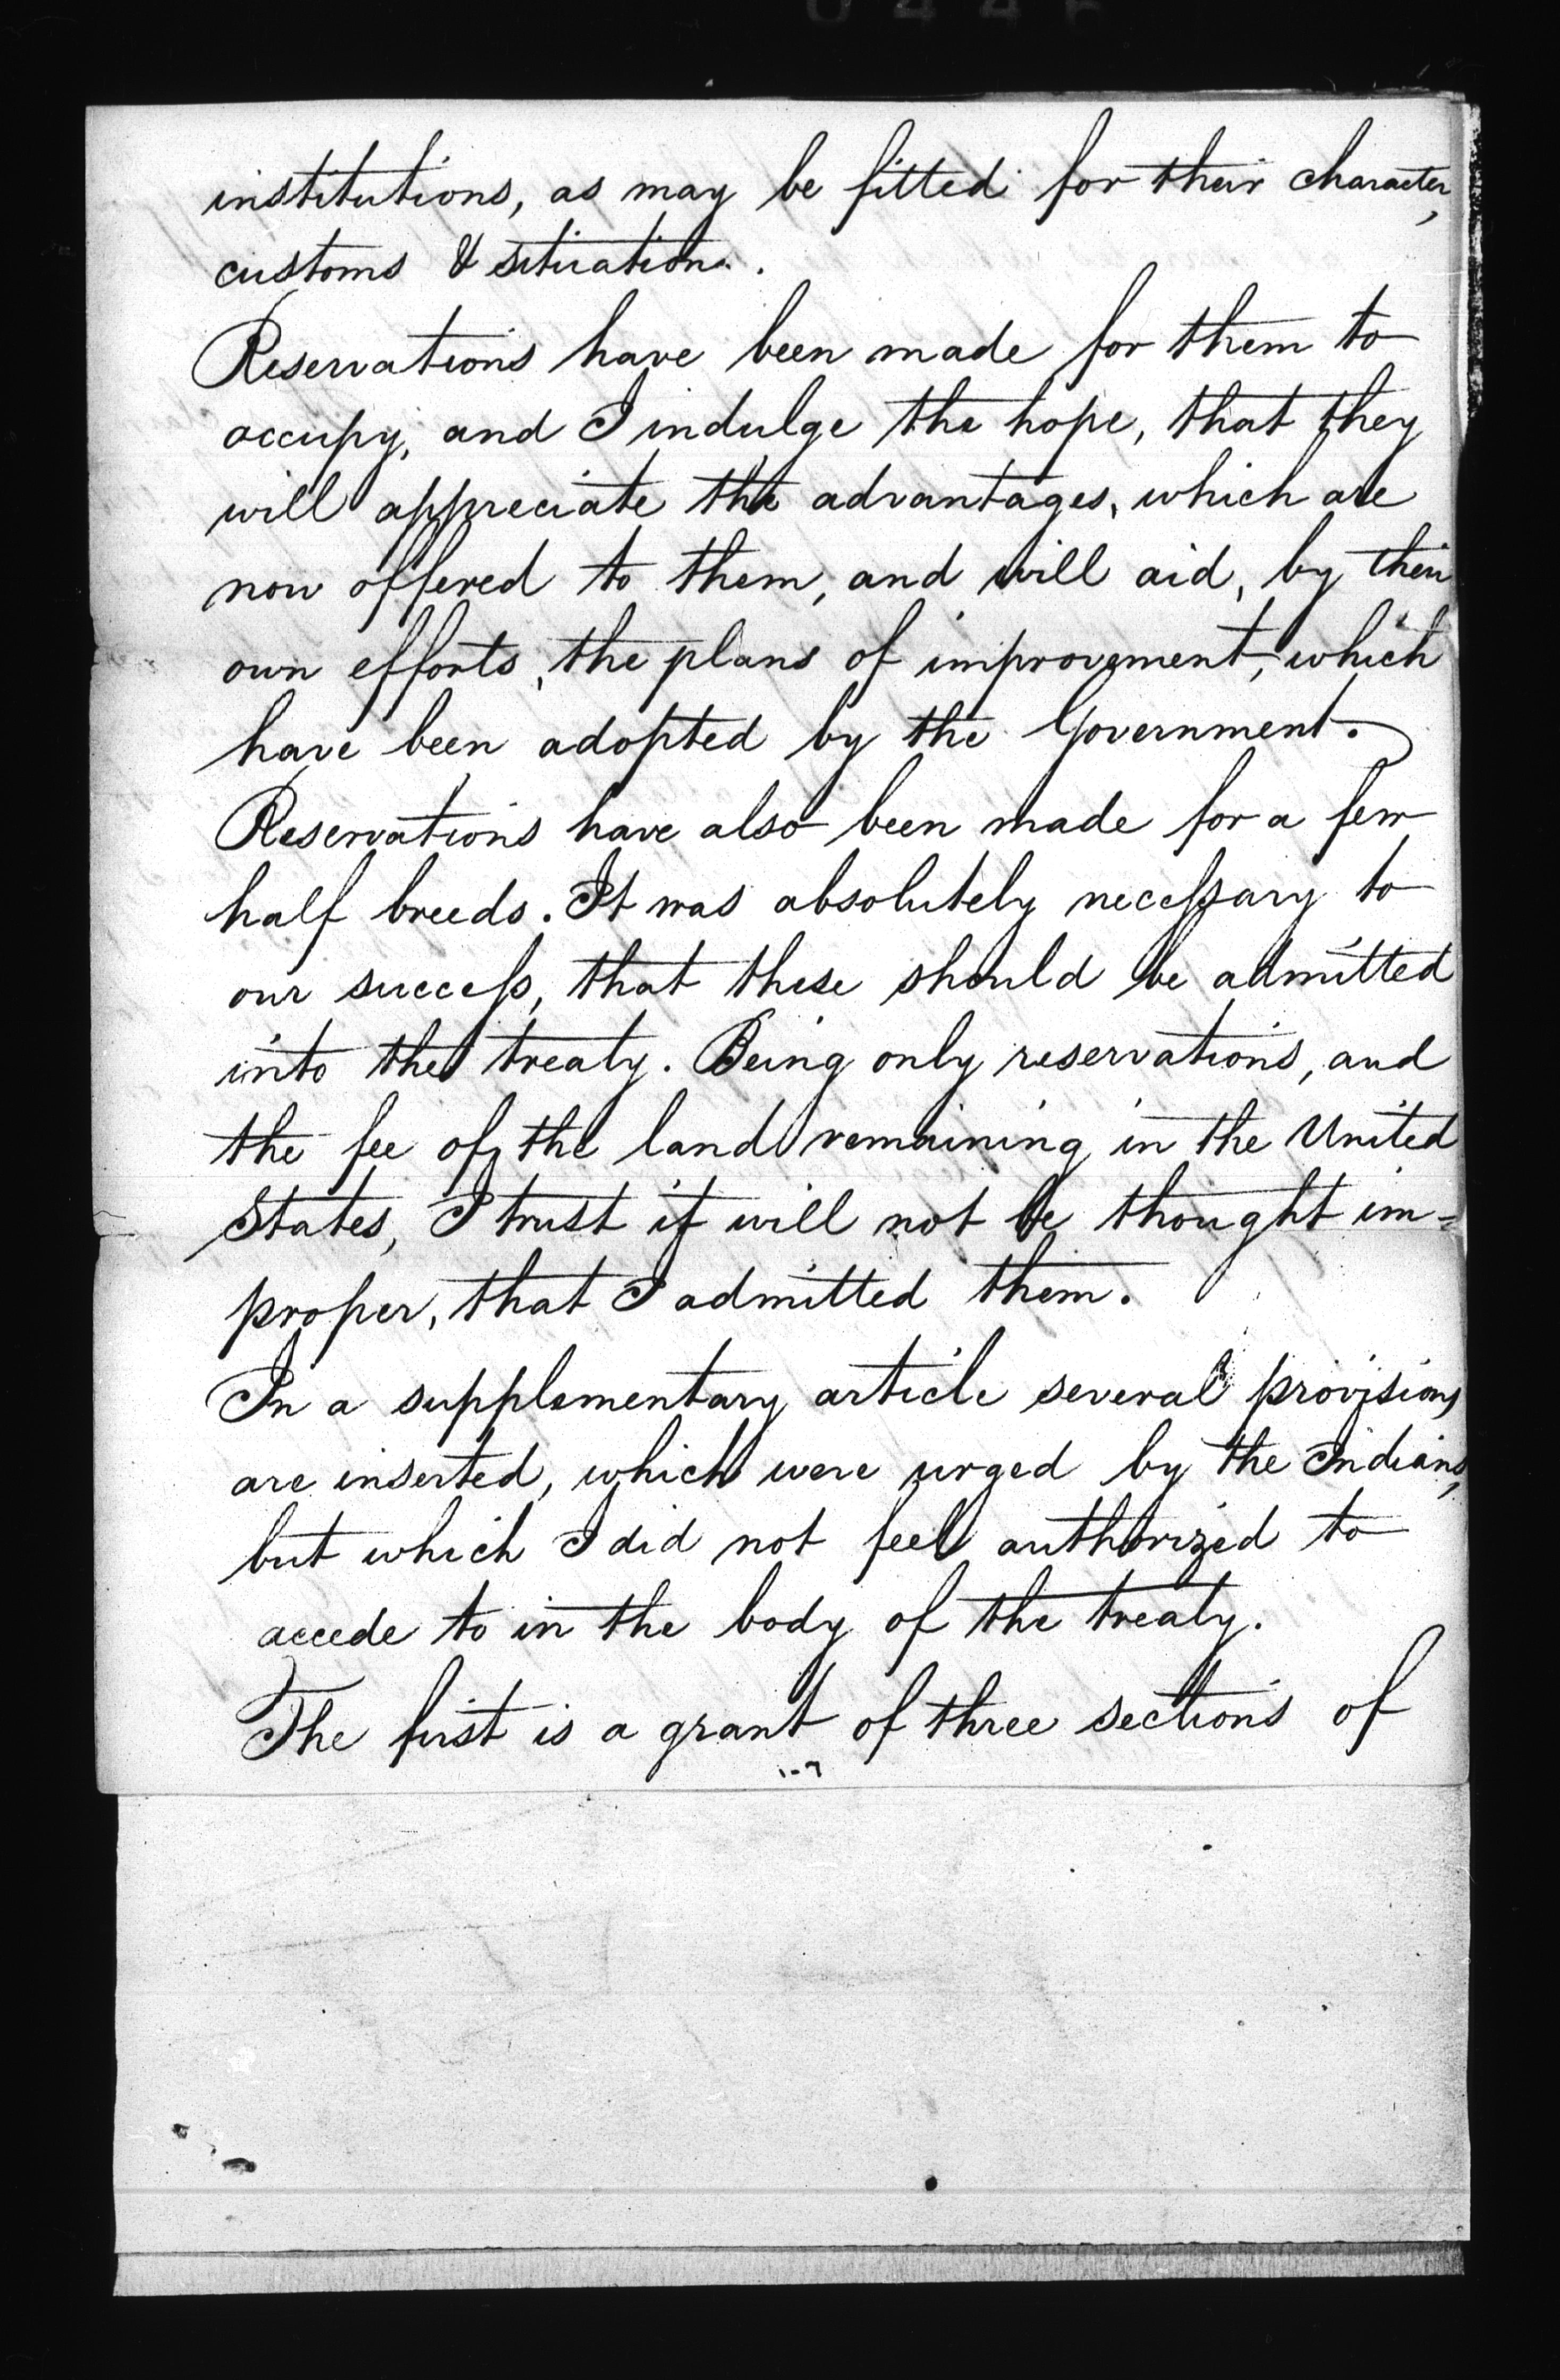 institutions, as may be fitted for their character,
customs & situation.
Reservations have been made for them to
occupy, and I indulge the hope, that they
will appreciate the advantages, which are
now offered to them, and will aid, by their
own efforts, the plans of improvement, which
have been adopted by the Government.
Reservations have also been made for a few
half breeds. It was absolutely necessary to
our success, that these should be admitted
into the treaty. Being only reservations, and
the fee of the land remaining in the United
States, I trust it will not be thought im-
proper, that I admitted them.
In a supplementary article several provisions
are inserted, which were urged by the Indians,
but which I did not feel authorized to
accede to in the body of the treaty.
The first is a grant of three sections of